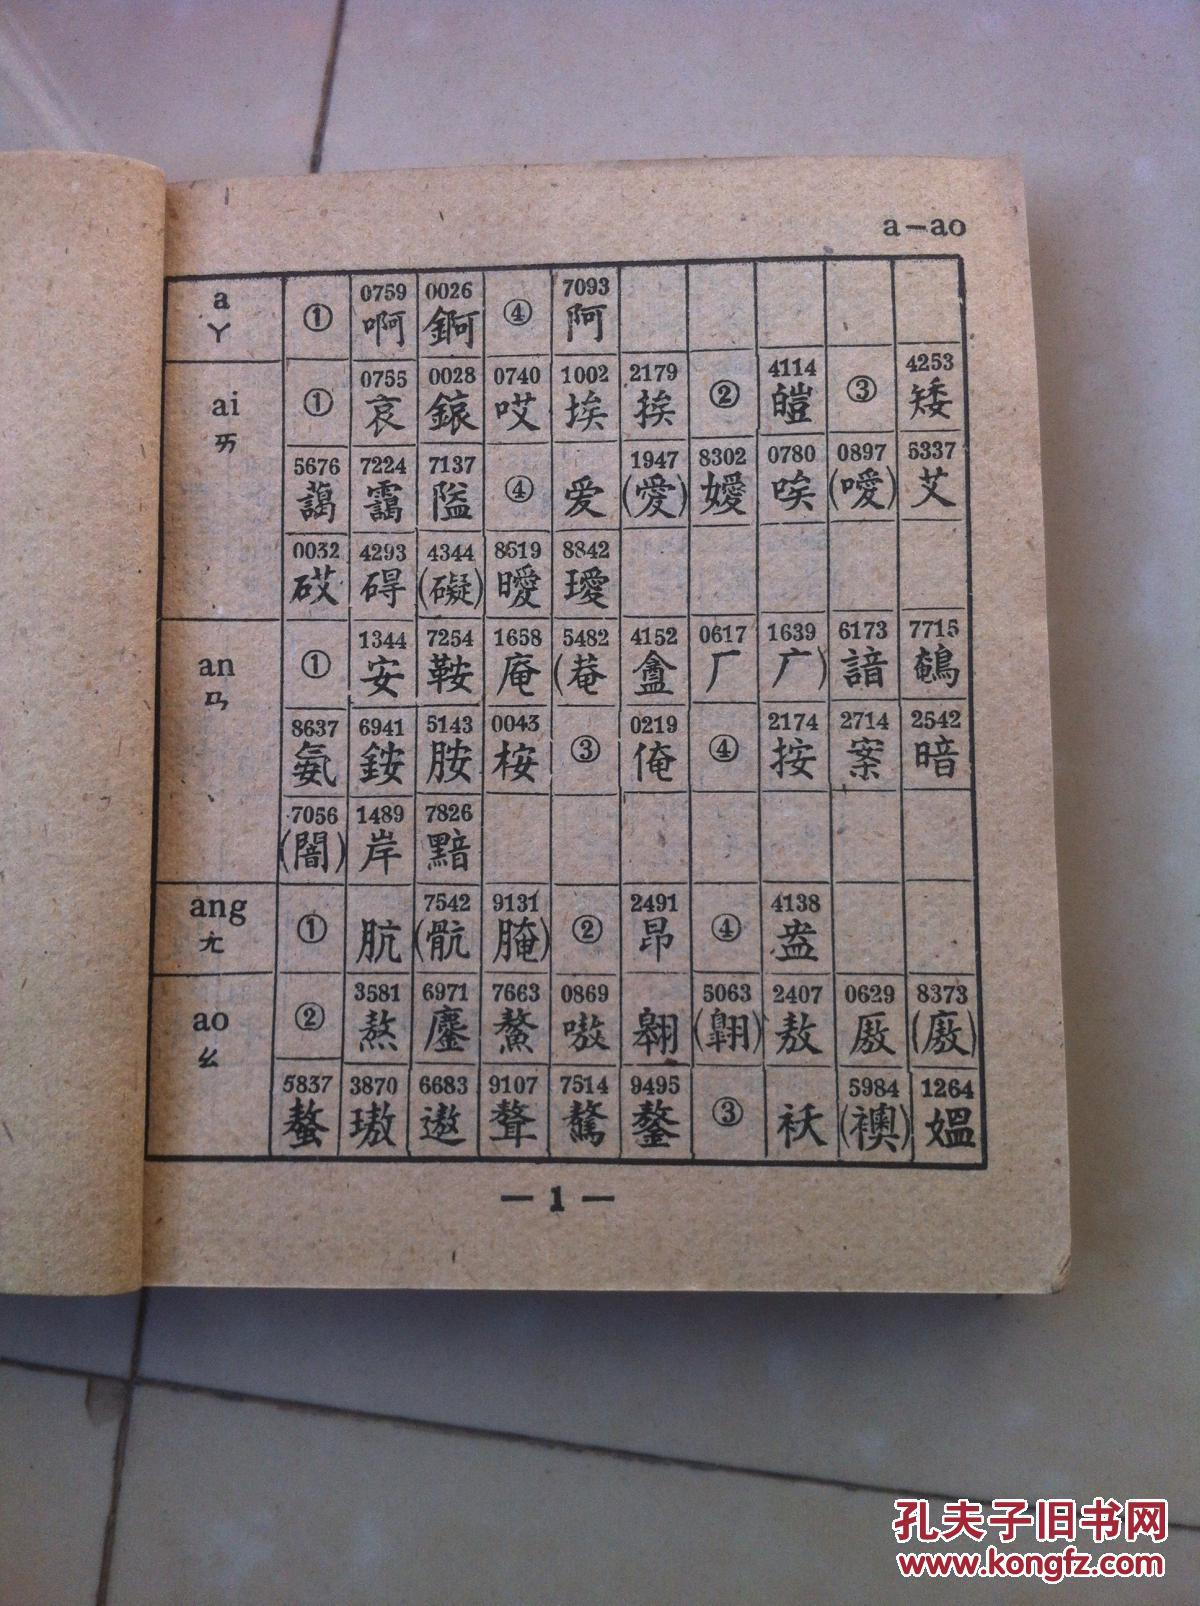 a-ao
a ㄚ ① 0759 啊 0026 錒 ④ 7093 阿
ai ㄞ ① 0755 哀 0028 鎄 0740 哎 1002 埃 2179 挨 ② 4114 皚 ③ 4253 矮
5676 藹 7224 靄 7137 隘 ④ 爱 1947 (愛) 8302 嬡 0780 唉 0897 (噯) 5337 艾
0032 砹 4293 碍 4344 (礙) 8519 曖 8842 璦
an ㄢ ① 1344 安 7254 鞍 1658 庵 5482 (菴 4152 盦 0617 厂 1639 广) 6173 諳 7715 鵪
8637 氨 6941 銨 5143 胺 0043 桉 ③ 0219 俺 ④ 2174 按 2714 案 2542 暗
7056 (闇) 1489 岸 7826 黯
ang ㄤ ① 肮 7542 (骯 9131 腌) ② 2491 昂 ④ 4138 盎
ao ㄠ ② 3581 熬 6971 鏖 7663 鰲 0869 嗷 翱 5063 (翺) 2407 敖 0629 厫 8373 (廒)
5837 螯 3870 璈 6683 遨 9107 聱 7514 驁 9495 鏊 ③ 袄 5984 (襖) 1264 媼
— 1 —
孔夫子旧书网
www.kongfz.com